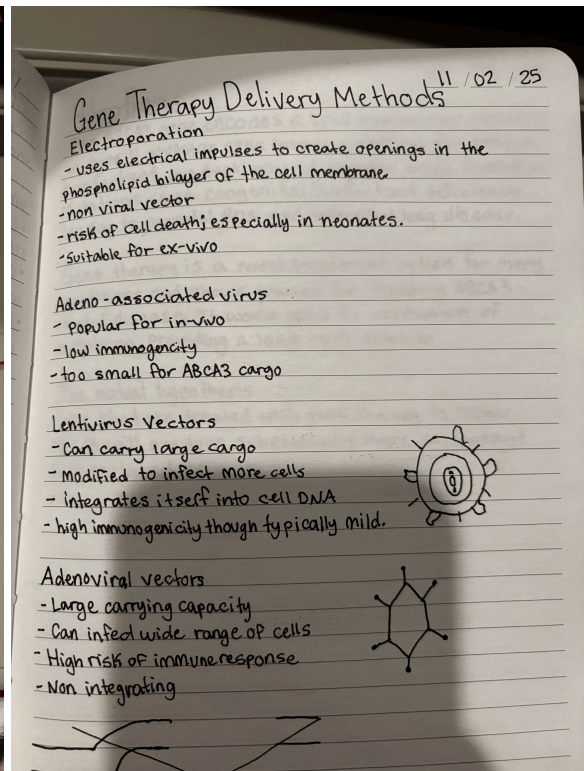 11 / 02 / 25
Gene Therapy Delivery Methods
Electroporation
- uses electrical impulses to create openings in the
phospholipid bilayer of the cell membrane.
- non viral vector
- risk of cell death; especially in neonates.
- Suitable for ex-vivo
Adeno-associated virus
- popular for in-vivo
- low immunogencity
- too small for ABCA3 cargo
Lentivirus Vectors
- Can carry large cargo
- modified to infect more cells
- integrates itself into cell DNA
- high immunogenicity though typically mild.
Adenoviral vectors
- Large carrying capacity
- Can infect wide range of cells
- High risk of immune response
- Non integrating